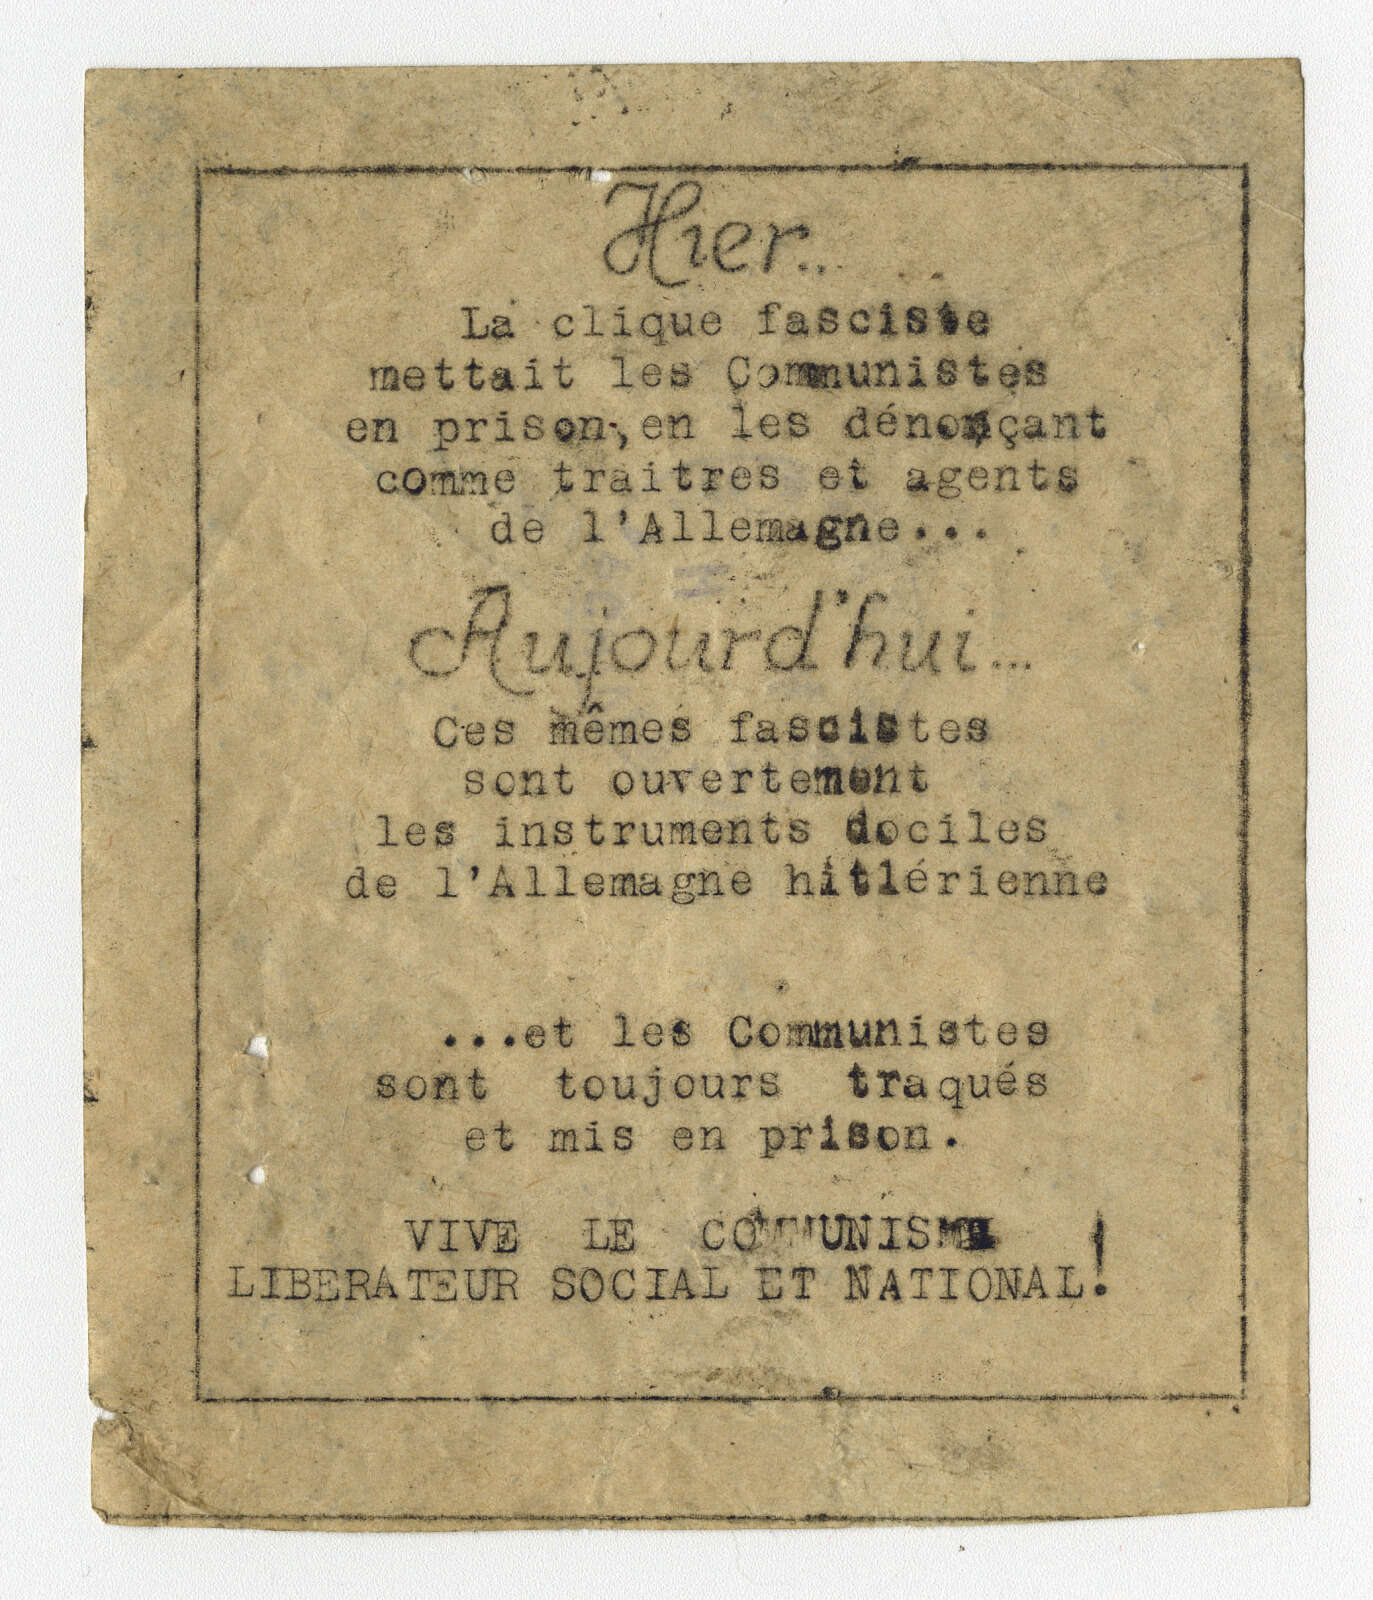 Hier...
La clique fasciste
mettait les Communistes
en prison, en les dénonçant
comme traitres et agents
de l'Allemagne...
Aujourd'hui...
Ces mêmes fascistes
sont ouvertement
les instruments dociles
de l'Allemagne hitlérienne
...et les Communistes
sont toujours traqués
et mis en prison.
VIVE LE COMMUNISME
LIBERATEUR SOCIAL ET NATIONAL!